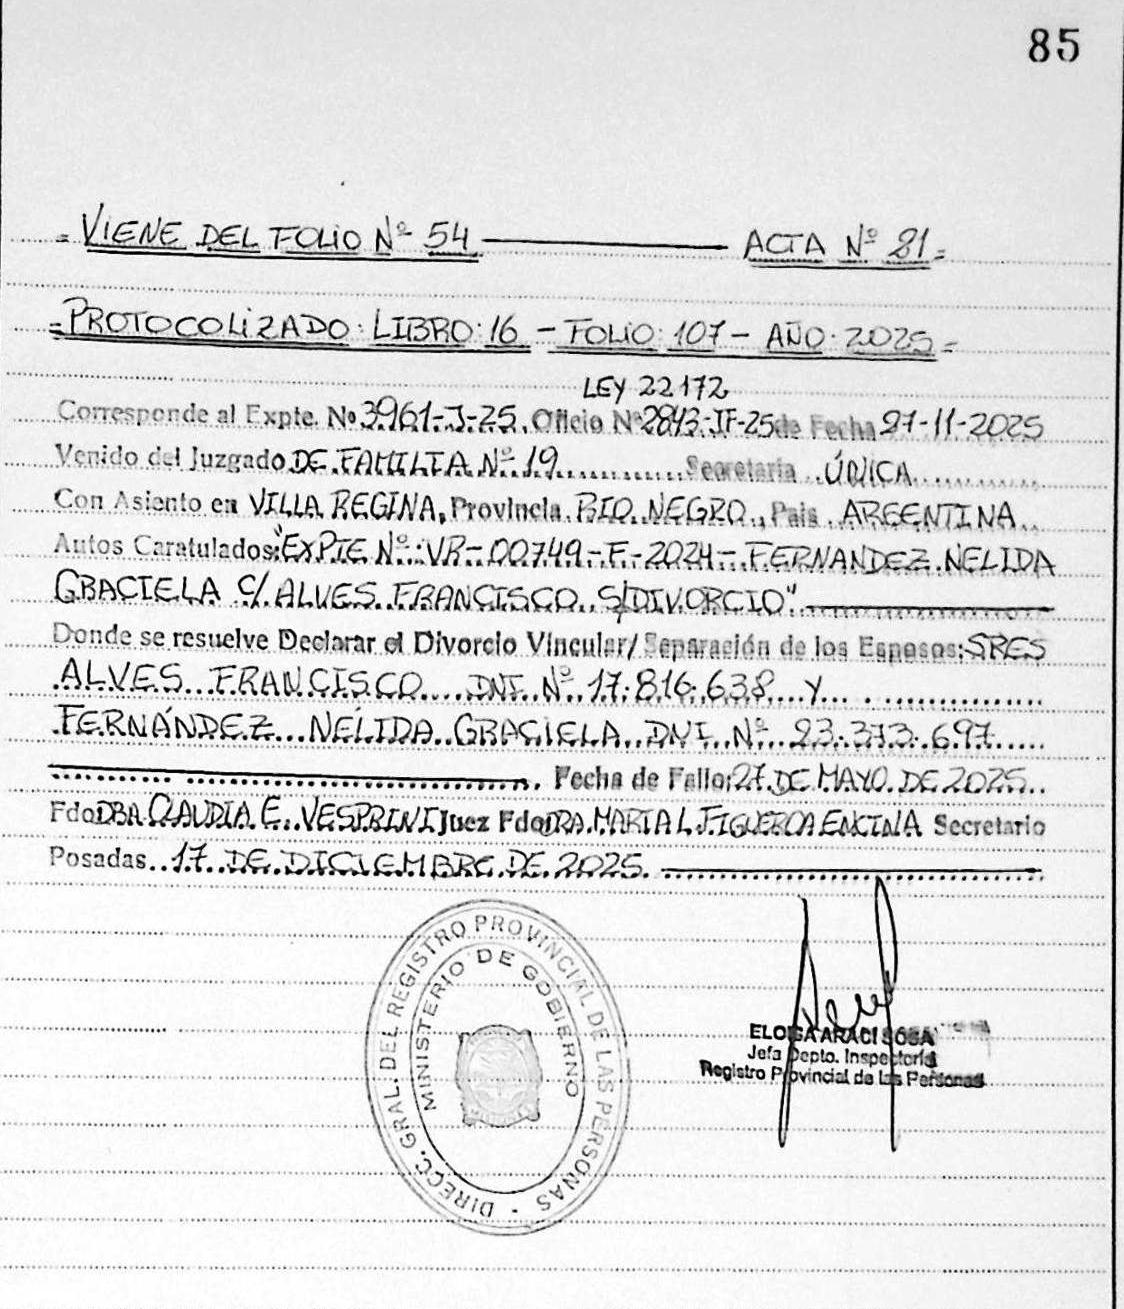 85
= VIENE DEL FOLIO Nº 54 ——— ACTA Nº 81 =
= PROTOCOLIZADO: LIBRO: 16 - FOLIO: 107 - AÑO: 2025 =
LEY 22172
Corresponde al Expte. Nº 3961-J-25. Oficio Nº 2843-JF-25 de Fecha 27-11-2025
Venido del Juzgado DE FAMILIA Nº 19 Secretaria ÚNICA
Con Asiento en VILLA REGINA, Provincia RIO NEGRO, Pais ARGENTINA
Autos Caratulados: "EXPTE Nº: VR-00749-F-2024- FERNANDEZ NELIDA
GRACIELA C/ ALVES FRANCISCO S/DIVORCIO"
Donde se resuelve Declarar el Divorcio Vincular/ Separación de los Esposos: SRES
ALVES FRANCISCO DNI Nº 17.816.638 Y
FERNÁNDEZ NÉLIDA GRACIELA DNI Nº 23.373.697
Fecha de Fallo: 27 DE MAYO DE 2025
Fdo DRA CLAUDIA E. VESPRINI Juez Fdo DRA. MARIA L. FIGUEROA ENCINA Secretario
Posadas 17 DE DICIEMBRE DE 2025.
DIRECC. GRAL. DEL REGISTRO PROVINCIAL DE LAS PERSONAS
MINISTERIO DE GOBIERNO
ELOISA ARACI SOSA
Jefa Depto. Inspectoría
Registro Provincial de las Personas